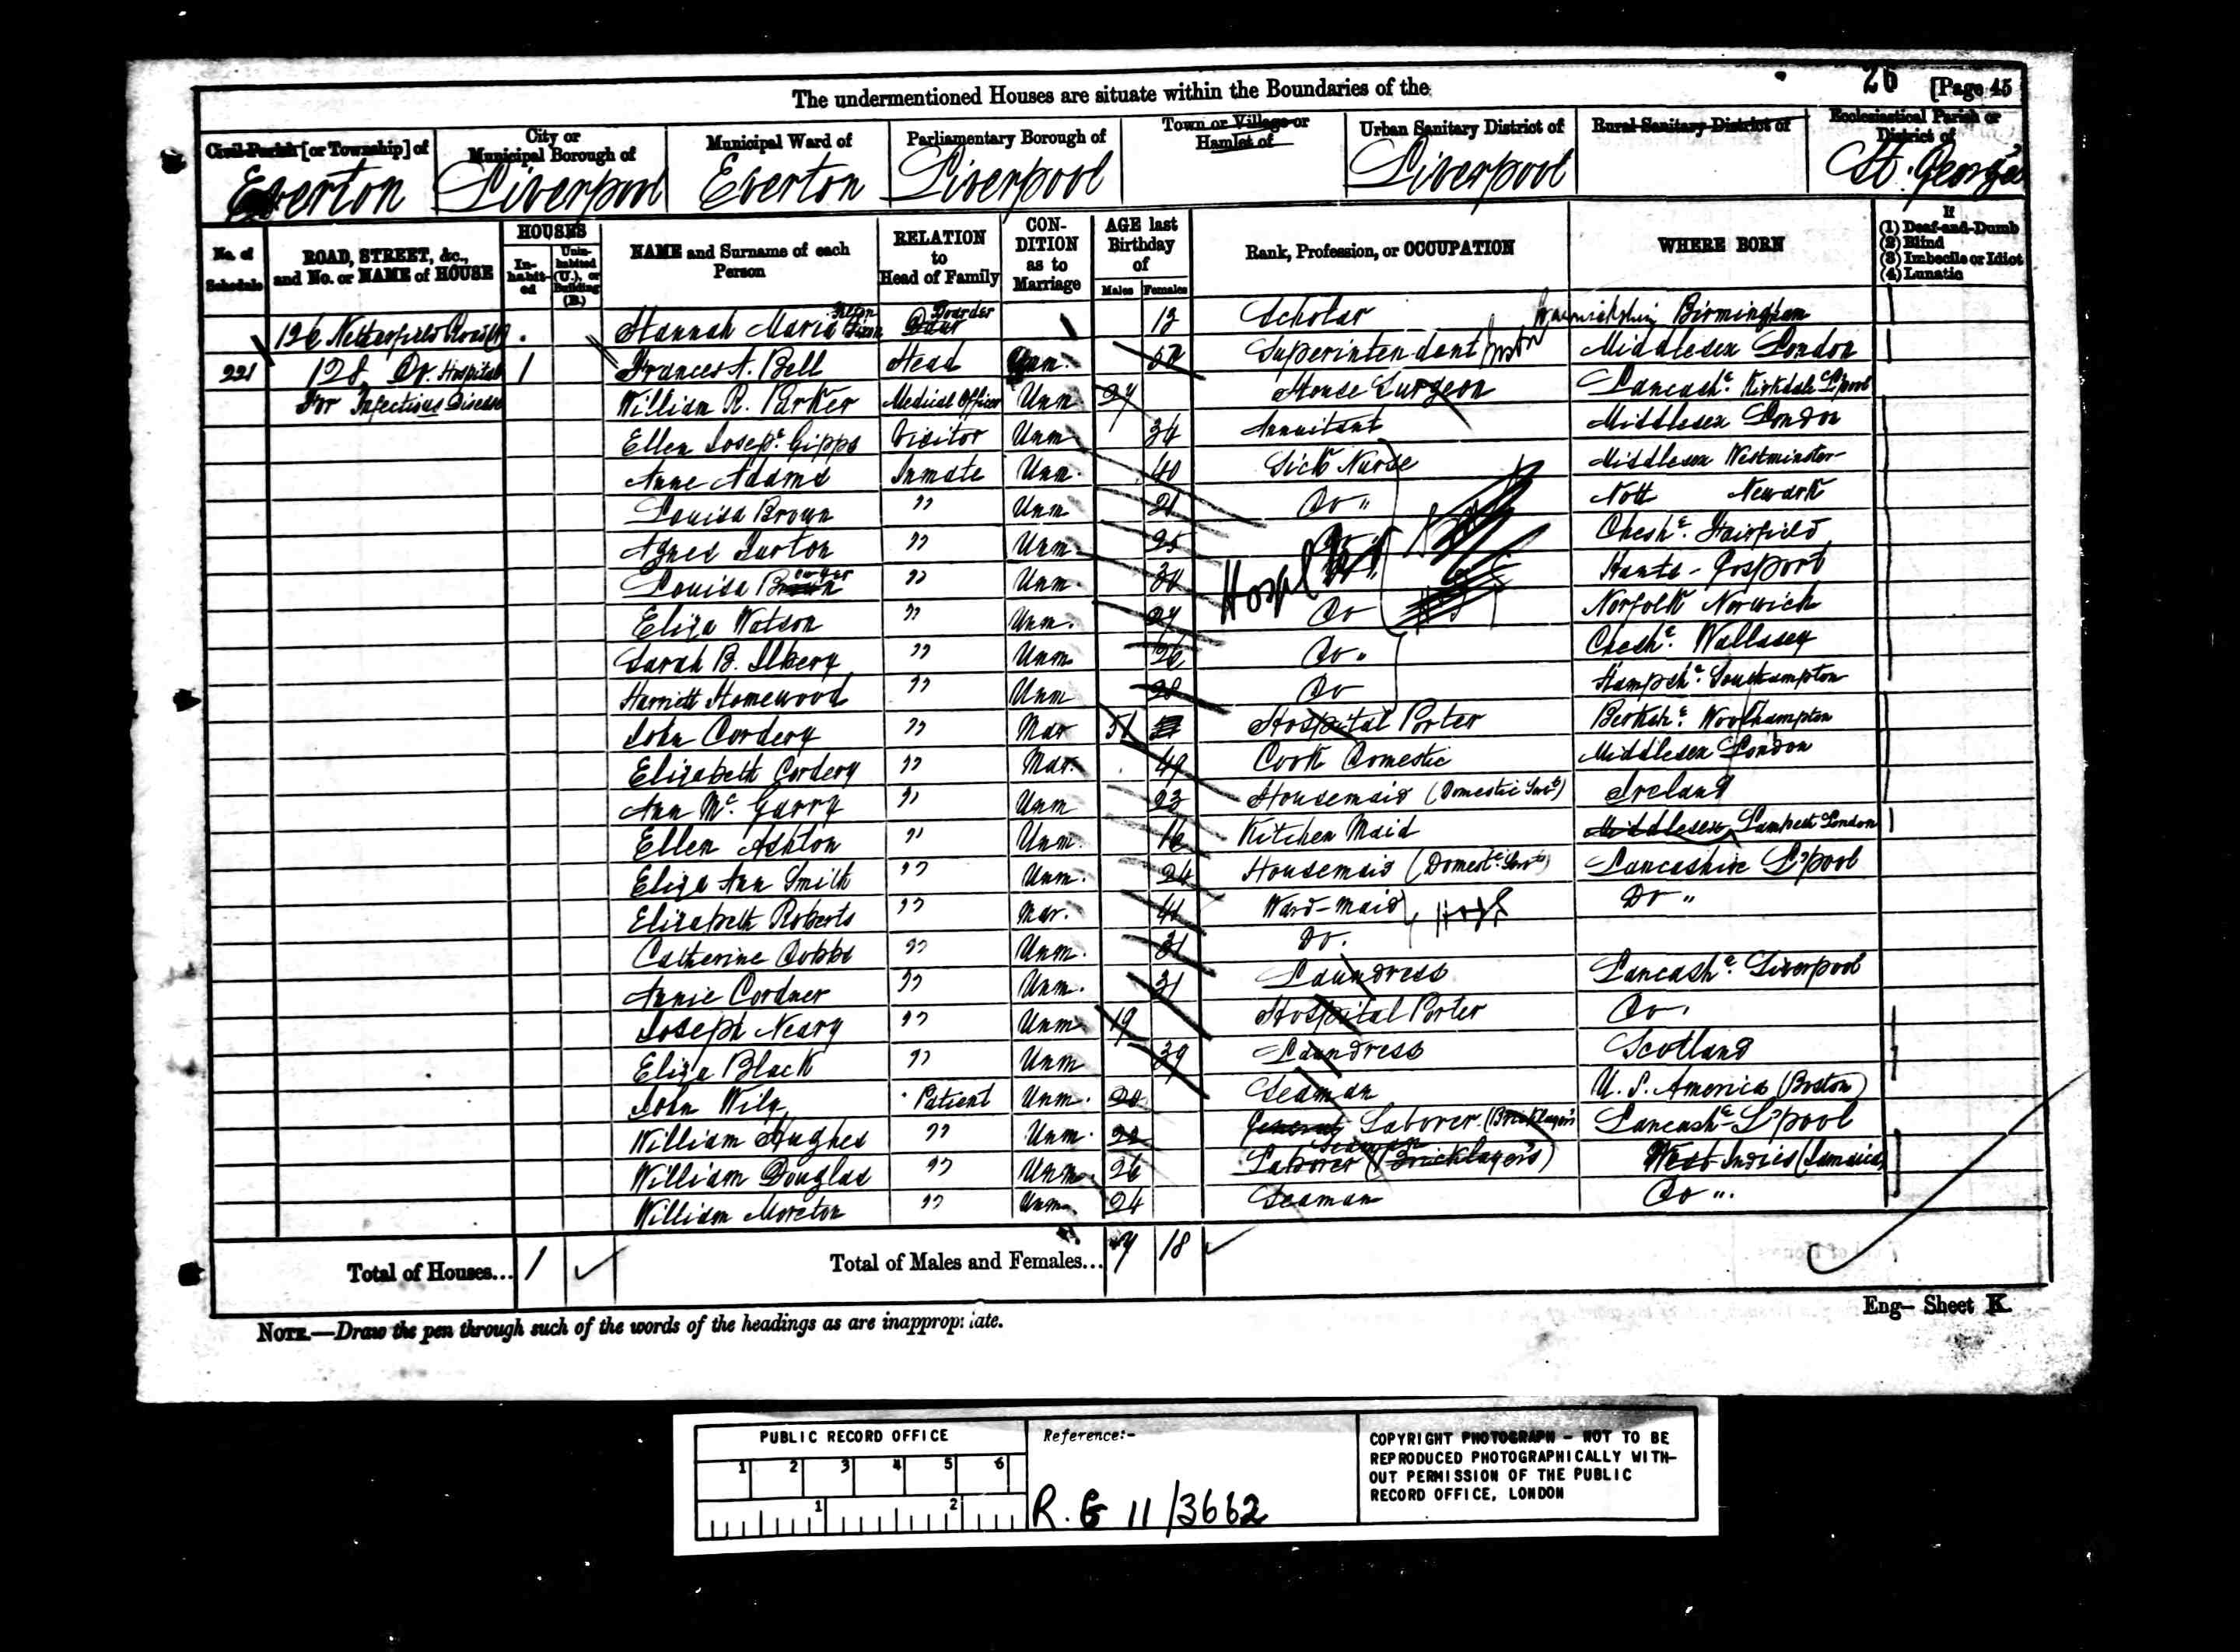 The undermentioned Houses are situate within the Boundaries of the
26 [Page 45
Civil Parish [or Township] of
City or Municipal Borough of
Municipal Ward of
Parliamentary Borough of
Town or Village or Hamlet of
Urban Sanitary District of
Rural Sanitary District of
Ecclesiastical Parish or District of
Everton Liverpool Everton Liverpool Liverpool St. George's
No. of Schedule
ROAD, STREET, &c., and No. or NAME of HOUSE
HOUSES
In-habit-ed
Unin-habited (U.), or Building (B.)
NAME and Surname of each Person
RELATION to Head of Family
CON-DITION as to Marriage
AGE last Birthday of
Males Females
Rank, Profession, or OCCUPATION
WHERE BORN
If
(1) Deaf-and-Dumb
(2) Blind
(3) Imbecile or Idiot
(4) Lunatic
126 Netherfield Road Hannah Maria Boarder 13 Scholar Warwickshire Birmingham
221 128 Do. Hospital 1 Frances A. Bell Head Unm. 52 Superintendent Middlesex London
For Infectious Disease William R. Parker Medical Officer Unm 27 House Surgeon Lancash.e Kirkdale L'pool
Ellen Josep.e Gipps Visitor Unm 34 Annuitant Middlesex London
Anne Adams Inmate Unm. 40 Sick Nurse Middlesex Westminster
Louisa Brown " Unm Do " Nott Newark
Agnes Burton " Unm. 25 Chesh.e Fairfield
Louisa " Unm 30 Hants - Gosport
Hospl
Eliza Watson " Unm. 27 Do Norfolk Norwich
Sarah B. Ilbery " Unm 26 Do " Chesh.e Wallasey
Harriett Homewood " Unm 28 Do Hampsh.e Southampton
John Cordery " Mar 51 Hospital Porter Berksh.e Woolhampton
Elizabeth Cordery " Mar. 49 Cook Domestic Middlesex London
Ann Mc. Garry " Unm 23 Housemaid (Domestic Servt) Ireland
Ellen Ashton " Unm. 16 Kitchen Maid Middlesex Lambeth London
Eliza Ann Smith " Unm. 24 Housemaid (Domest.c Servt) Lancashire L'pool
Elizabeth Roberts " Mar. Ward-Maid Hospl Do "
Catherine Dobbs " Unm. 31 Do.
Annie Cordner " Unm. 31 Laundress Lancash.e Liverpool
Joseph Neary " Unm 19 Hospital Porter Do.
Eliza Black " Unm 39 Laundress Scotland
John Wily Patient Unm. 20 Seaman U. S. America (Boston)
William Hughes " Unm. 22 General Laborer (Bricklayers) Lancash.e L'pool
William Douglas " Unm. 26 Seaman Laborer (Bricklayers) West Indies (Jamaica)
William Moreton " Unm. 24 Seaman Do "
Total of Houses... 1
Total of Males and Females... 7 18
NOTE.—Draw the pen through such of the words of the headings as are inappropriate.
Eng— Sheet K.
PUBLIC RECORD OFFICE
1 2 3 4 5 6
1 2
Reference:-
R.G 11/3662
COPYRIGHT PHOTOGRAPH - NOT TO BE
REPRODUCED PHOTOGRAPHICALLY WITH-
OUT PERMISSION OF THE PUBLIC
RECORD OFFICE, LONDON